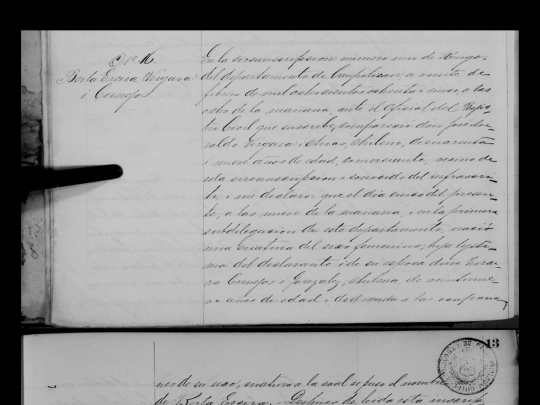 No 16.
Berta Elvira Vergara
i Cornejo
En la circunscripcion numero uno de Rengo,
del departamento de Caupolican, a veinte de
de mil ochocientos ochenta i cinco, a las
ocho de la mañana, ante el Oficial del Rejis-
tro Civil que suscribe, compareció don
Vergara i chileno, de cuarenta
i nueve años de edad, comerciante, vecino de
esta circunscripcion i conocido del infrascri-
to, i me declaró: que el dia cinco del presen-
te, a las nueve de la mañana, i en la primera
subdelegacion de este departamento, nació
una criatura del sexo femenino, hija lejiti-
ma del declarante i de su esposa doña
Cornejo i Gonzalez, chilena, de veintinue-
ve años de edad i dedicada a las ocupacio-
13
nes de su sexo, criatura a la cual se puso el nombre
de Despues de leida esta inscrip-